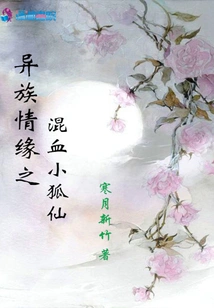 异族情缘之
混血小狐仙
寒月新竹 著